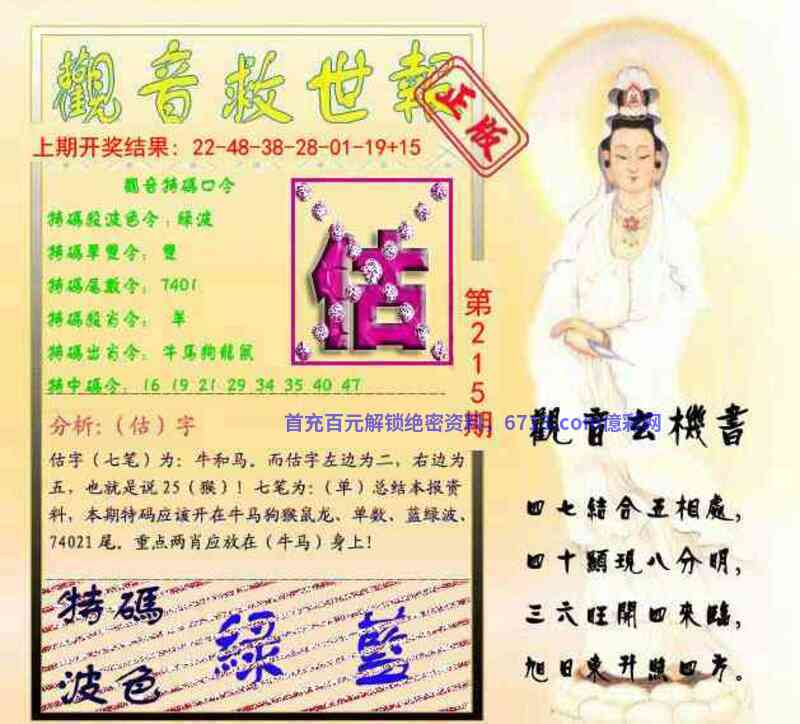 觀音救世報
正版
上期开奖结果：22-48-38-28-01-19+15
觀音特碼口令
特碼殺波色令：綠波
特碼單雙令： 雙
特碼尾數令：7401
特碼殺肖令： 羊
特碼出肖令：牛马狗龍鼠
特中碼令：16 19 21 29 34 35 40 47
估
第215期
分析：（估）字
首充百元解锁绝密资料
.com億彩网
估字（七笔）为：牛和马。而估字左边为二，右边为
五，也就是说25（猴）！七笔为：（单）总结本报资
料，本期特码应该开在牛马狗猴鼠龙、单数、蓝绿波、
74021尾。重点两肖应放在（牛马）身上！
特碼
波色
綠 藍
觀音玄機書
四七結合五相處，
四十顯現八分明，
三六旺開四來臨，
旭日東升照四方。